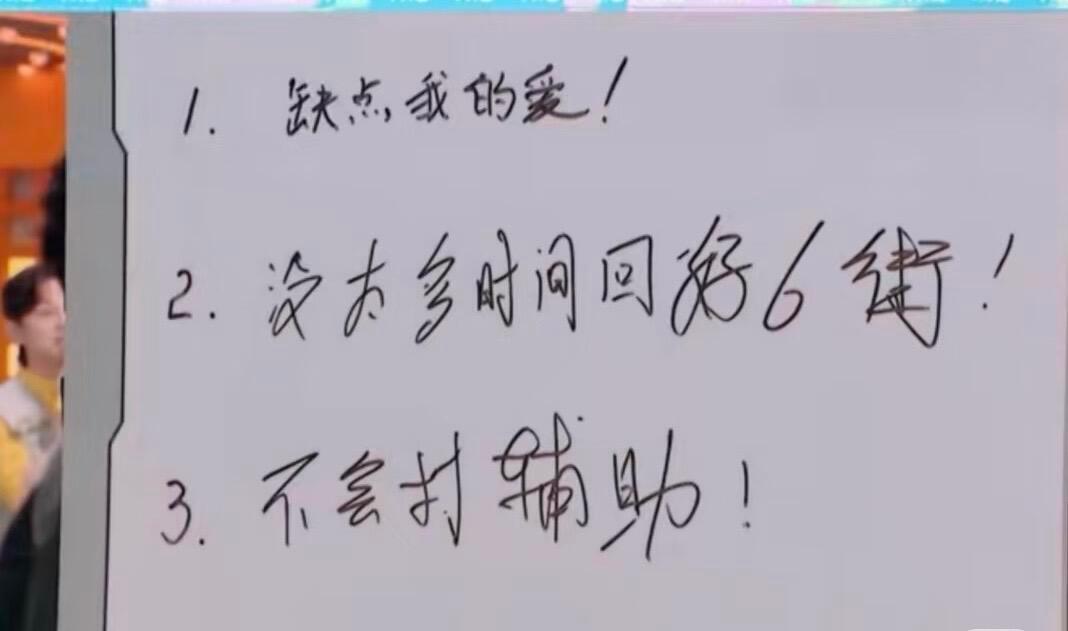 1. 缺点我的爱!
2. 没太多时间回好6街!
3. 不会打辅助!